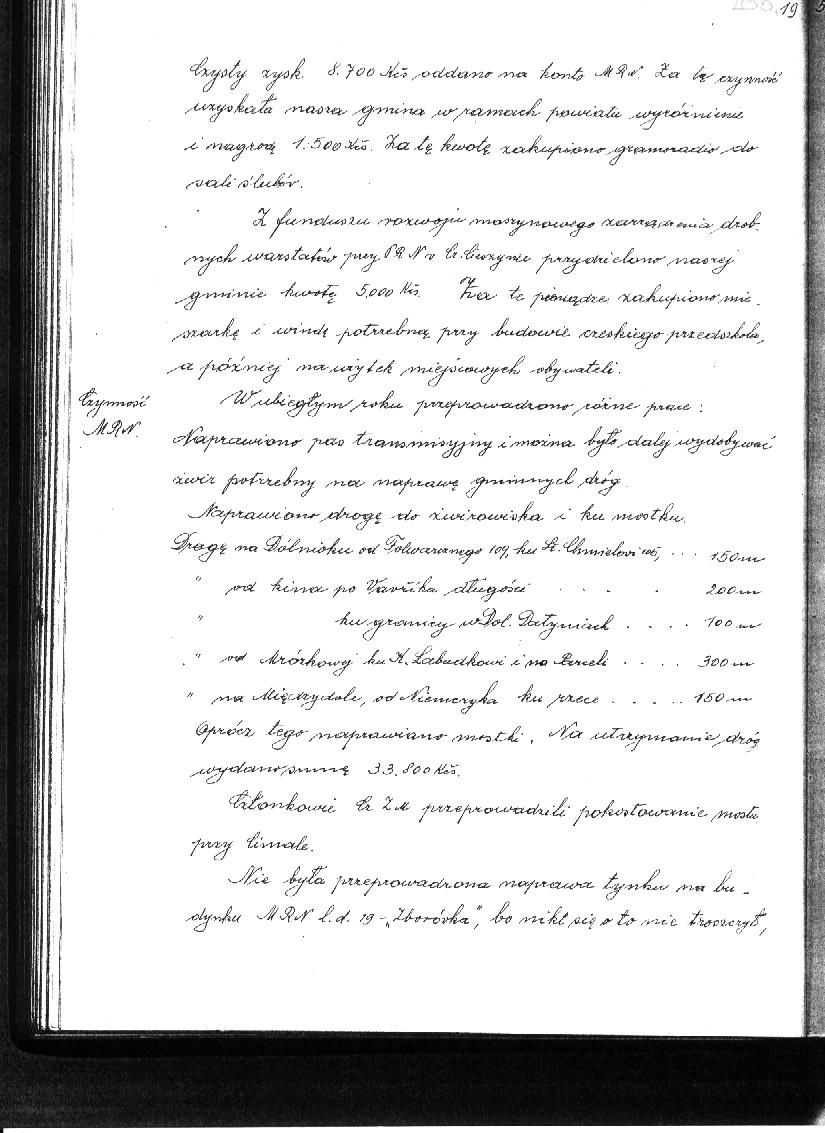 19
Czysty zysk 8.700 Kčs oddano na konto M R N. Za tę czynność
uzyskała nasza gmina w ramach powiatu wyróżnienie
i nagrodę 1.500 Kčs. Za tę kwotę zakupiono gramoradio do
sali ślubów.
Z funduszu rozwoju maszynowego zarządzenia drob-
nych warstatów przy P R N v Cz. Cieszynie przydzielono naszej
gminie kwotę 5.000 Kčs. Za te pieniądze zakupiono mie-
szarkę i windę potrzebną przy budowie czeskiego przedszkola,
a później na użytek miejscowych obywateli.
Czynność
M R N.
W ubiegłym roku przeprowadzono różne prace:
Naprawiono pas transmisyjny i można było dalej wydobywać
żwir potrzebny na naprawę gminnych dróg.
Naprawiono drogę do żwirowiska i ku mostku.
Drogę na Dólnioku od Folwarcznego 109, ku St. Chmielovi 105, ... 150 m
" od kina po Vavřika długości . . . 200 m
" ku granicy w Dol. Datyniach . . . . 100 m
" od Mrózkowej ku K. Labudkowi i na Parceli . . . . 300 m
" na Międzydole, od Niemczyka ku rzece . . . . . 150 m
Oprócz tego naprawiano mostki. Na utrzymanie dróg
wydano sumę 33.800 Kčs.
Członkowie Cz Z M przeprowadzili pokostowanie mostu
przy Cimale.
Nie była przeprowadzona naprawa tynku na bu-
dynku M R N l. d. 19 - „Zborówka", bo nikt się o to nie troszczył,